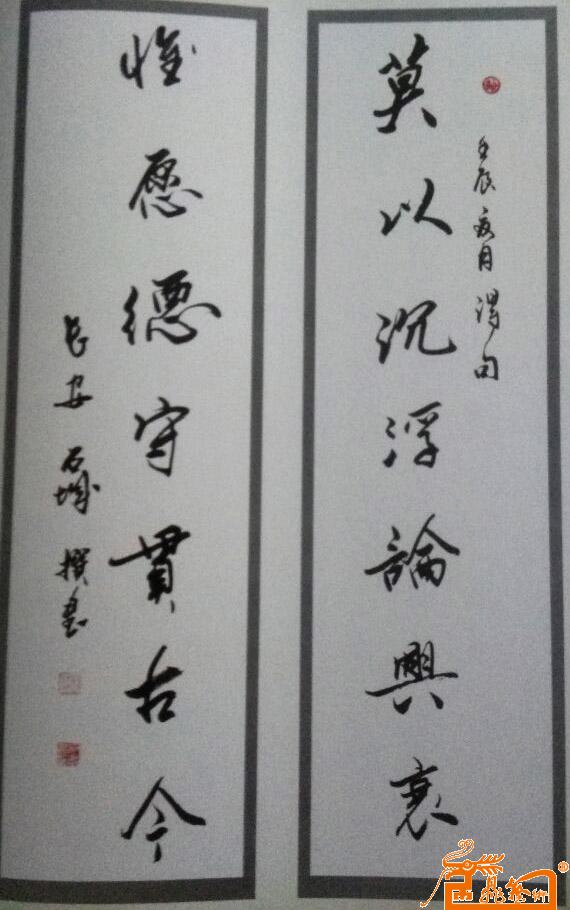 莫以沉浮論興衰
壬辰夏月 渭甸
惟愿德守貫古今
長安 石城 撰書